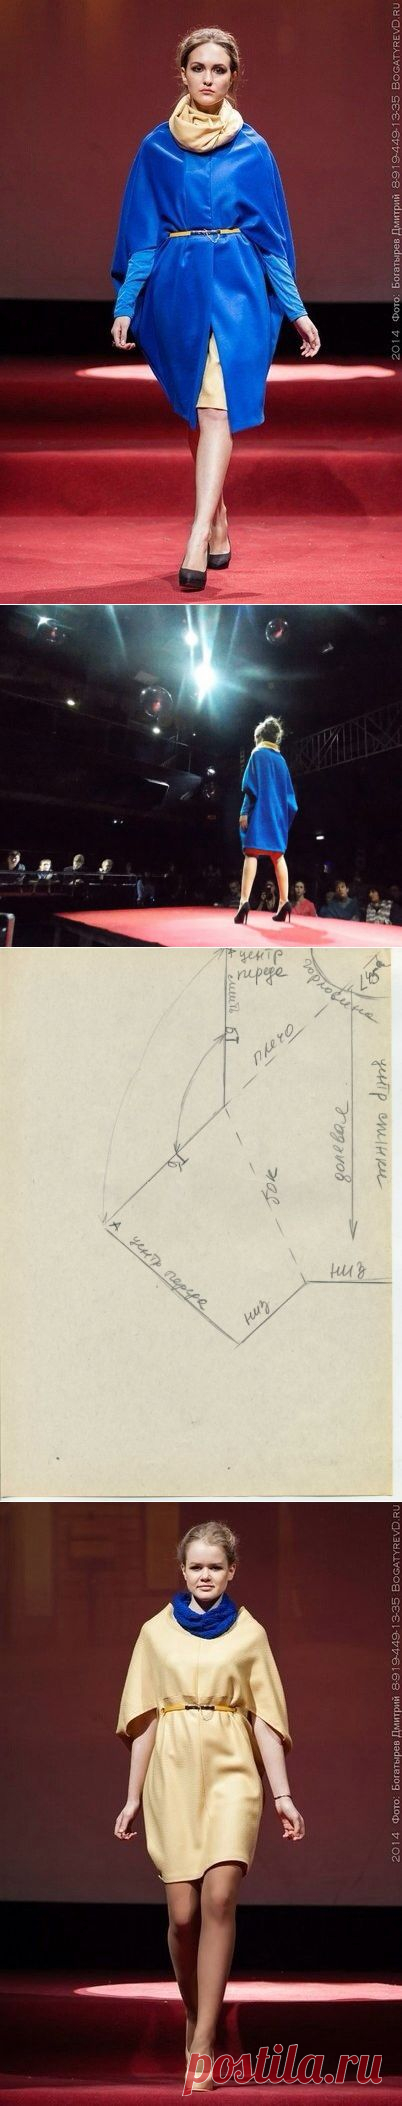 2014 Фото: Богатырев Дмитрий 8-919-449-13-35 BOGATYREVD.RU
А центр
переда
сшить
БТ
плечо
горловина
центр спинки
долевая
бок
БТ
А центр переда
низ
низ
2014 Фото: Богатырев Дмитрий 8-919-449-13-35 BOGATYREVD.RU
postila.ru